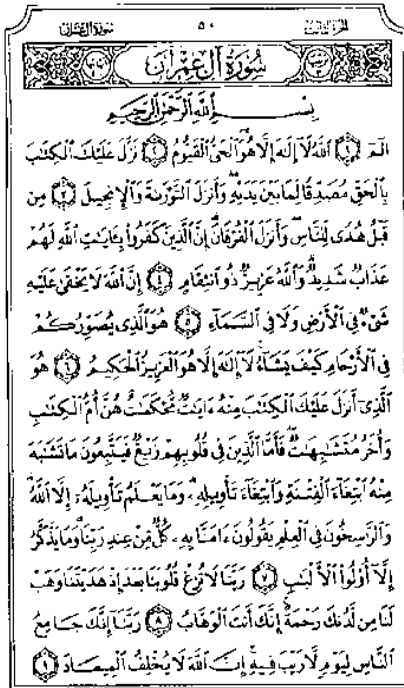 سورة آل عمران ٥٠ الجزء الثالث
سورة آل عمران
بِسْمِ اللَّهِ الرَّحْمَٰنِ الرَّحِيمِ
الٓمٓ ١ اللَّهُ لَا إِلَٰهَ إِلَّا هُوَ الْحَيُّ الْقَيُّومُ ٢ نَزَّلَ عَلَيْكَ الْكِتَٰبَ
بِالْحَقِّ مُصَدِّقًا لِمَا بَيْنَ يَدَيْهِ وَأَنزَلَ التَّوْرَىٰةَ وَالْإِنجِيلَ ٣ مِن
قَبْلُ هُدًى لِلنَّاسِ وَأَنزَلَ الْفُرْقَانَ إِنَّ الَّذِينَ كَفَرُوا بِـَٔايَٰتِ اللَّهِ لَهُمْ
عَذَابٌ شَدِيدٌ وَاللَّهُ عَزِيزٌ ذُو انتِقَامٍ ٤ إِنَّ اللَّهَ لَا يَخْفَىٰ عَلَيْهِ
شَىْءٌ فِى الْأَرْضِ وَلَا فِى السَّمَآءِ ٥ هُوَ الَّذِى يُصَوِّرُكُمْ
فِى الْأَرْحَامِ كَيْفَ يَشَآءُ لَا إِلَٰهَ إِلَّا هُوَ الْعَزِيزُ الْحَكِيمُ ٦ هُوَ
الَّذِىٓ أَنزَلَ عَلَيْكَ الْكِتَٰبَ مِنْهُ ءَايَٰتٌ مُحْكَمَٰتٌ هُنَّ أُمُّ الْكِتَٰبِ
وَأُخَرُ مُتَشَٰبِهَٰتٌ فَأَمَّا الَّذِينَ فِى قُلُوبِهِمْ زَيْغٌ فَيَتَّبِعُونَ مَا تَشَٰبَهَ
مِنْهُ ابْتِغَآءَ الْفِتْنَةِ وَابْتِغَآءَ تَأْوِيلِهِ وَمَا يَعْلَمُ تَأْوِيلَهُ إِلَّا اللَّهُ
وَالرَّٰسِخُونَ فِى الْعِلْمِ يَقُولُونَ ءَامَنَّا بِهِ كُلٌّ مِنْ عِندِ رَبِّنَا وَمَا يَذَّكَّرُ
إِلَّا أُولُوا الْأَلْبَٰبِ ٧ رَبَّنَا لَا تُزِغْ قُلُوبَنَا بَعْدَ إِذْ هَدَيْتَنَا وَهَبْ
لَنَا مِن لَدُنكَ رَحْمَةً إِنَّكَ أَنتَ الْوَهَّابُ ٨ رَبَّنَا إِنَّكَ جَامِعُ
النَّاسِ لِيَوْمٍ لَا رَيْبَ فِيهِ إِنَّ اللَّهَ لَا يُخْلِفُ الْمِيعَادَ ٩